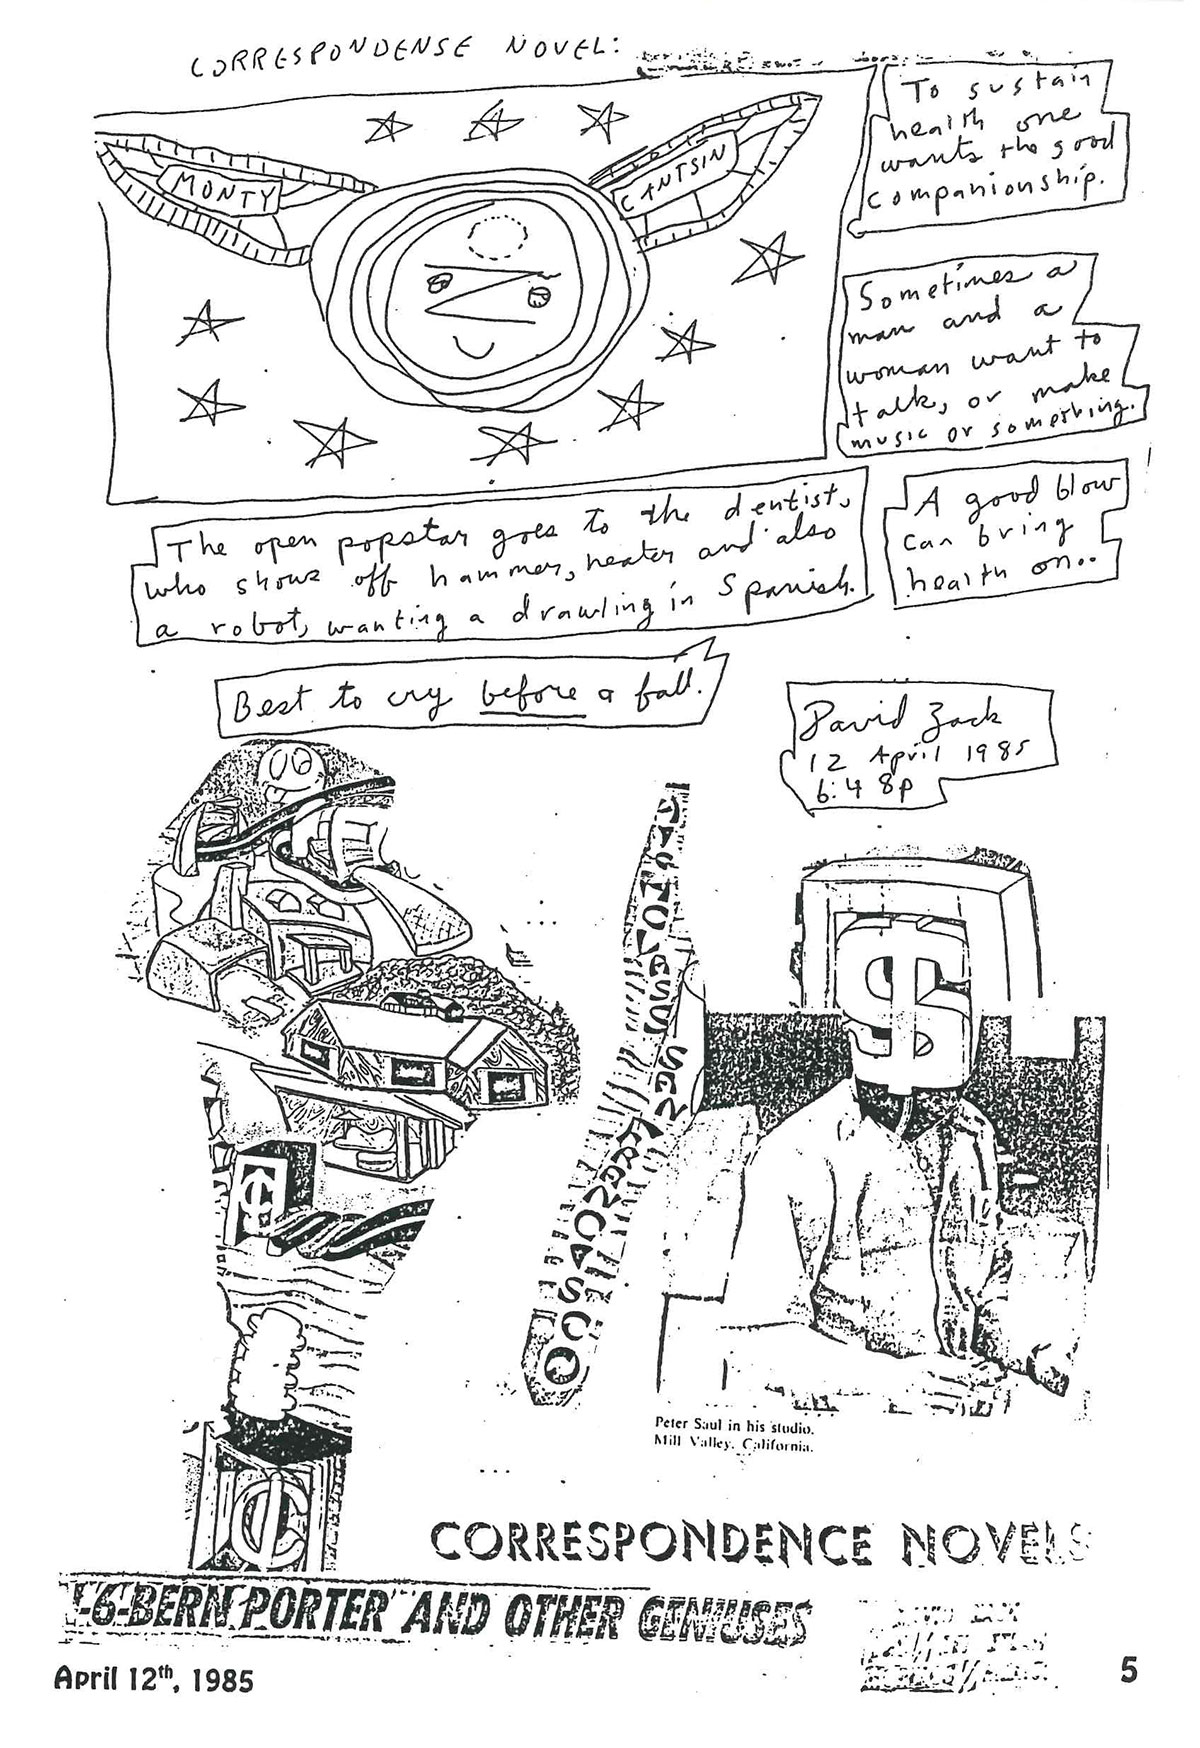 CORRESPONDENSE NOVEL:
MONTY
CANTSIN
To sustain
health one
wants the good
companionship.
Sometimes a
man and a
woman want to
talk, or make
music or something.
The open popstar goes to the dentist,
who shows off hammer, heater and also
a robot, wanting a drawling in Spanish.
A good blow
can bring
health on..
Best to cry before a fall.
David Zack
12 April 1985
6:48p
$
SAN FRANCISCO
Peter Saul in his studio.
Mill Valley, California.
CORRESPONDENCE NOVELS
-6-BERN PORTER AND OTHER GENIUSES
April 12th, 1985
5